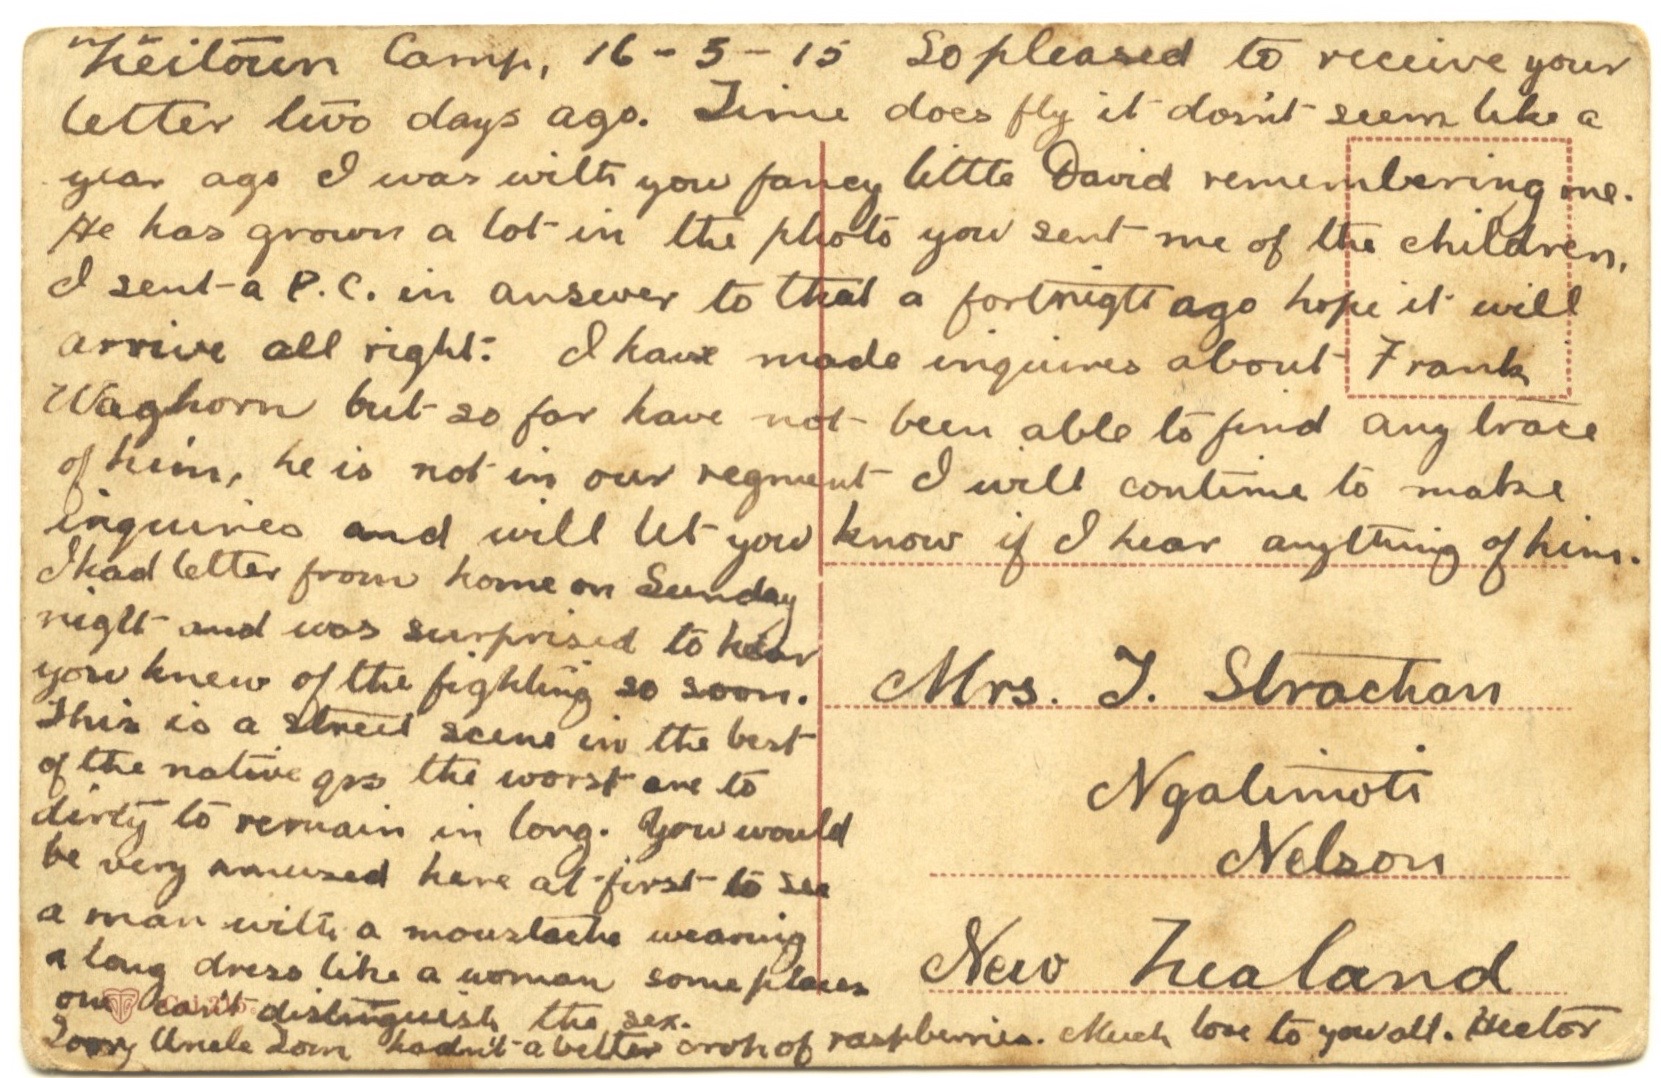 Zeitoun Camp, 16-5-15 So pleased to receive your
letter two days ago. Time does fly it dosn't seem like a
year ago I was with you fancy little David remembering me.
He has grown a lot in the photo you sent me of the children,
I sent a P.C. in answer to that a fortnight ago hope it will
arrive all right. I have made inquires about Frank
Waghorn but so far have not been able to find any trace
of him, he is not in our regment I will continue to make
inquiries and will let you know if I hear anything of him.
I had letter from home on Sunday
night and was surprised to hear
you knew of the fighting so soon.
This is a street scene in the best
of the native qrs the worst are to
dirty to remain in long. You would
be very amused here at first to see
a man with a moustache wearing
a long dress like a woman some places
one can't distinguish the sex.
Sorry Uncle Tom hadn't a better crop of raspberries. Much love to you all. Hector
Mrs. T. Strachan
Ngatimoti
Nelson
New Zealand